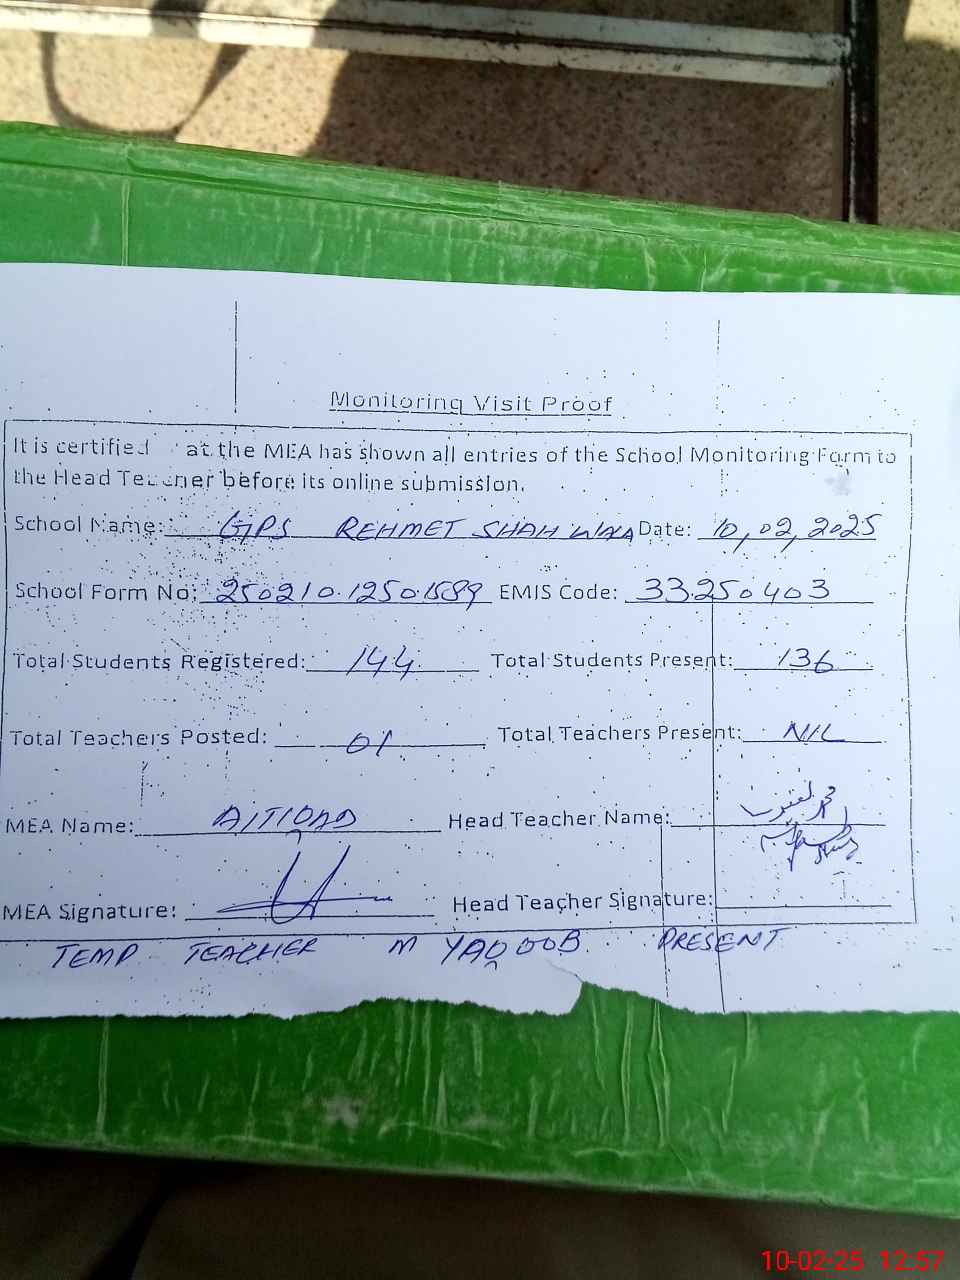 Monitoring Visit Proof
It is certified at the MEA has shown all entries of the School Monitoring Form to
the Head Teacher before its online submission.
School Name: GPS REHMET SHAH WALA Date: 10,02,2025
School Form No: 250210.1250.1589 EMIS Code: 33250403
Total Students Registered: 144 Total Students Present: 136
Total Teachers Posted: 01 Total Teachers Present: NIL
MEA Name: Head Teacher Name: محمد یعقوب
MEA Signature: Head Teacher Signature:
TEMP TEACHER M YAQOOB PRESENT
10-02-25 12:57